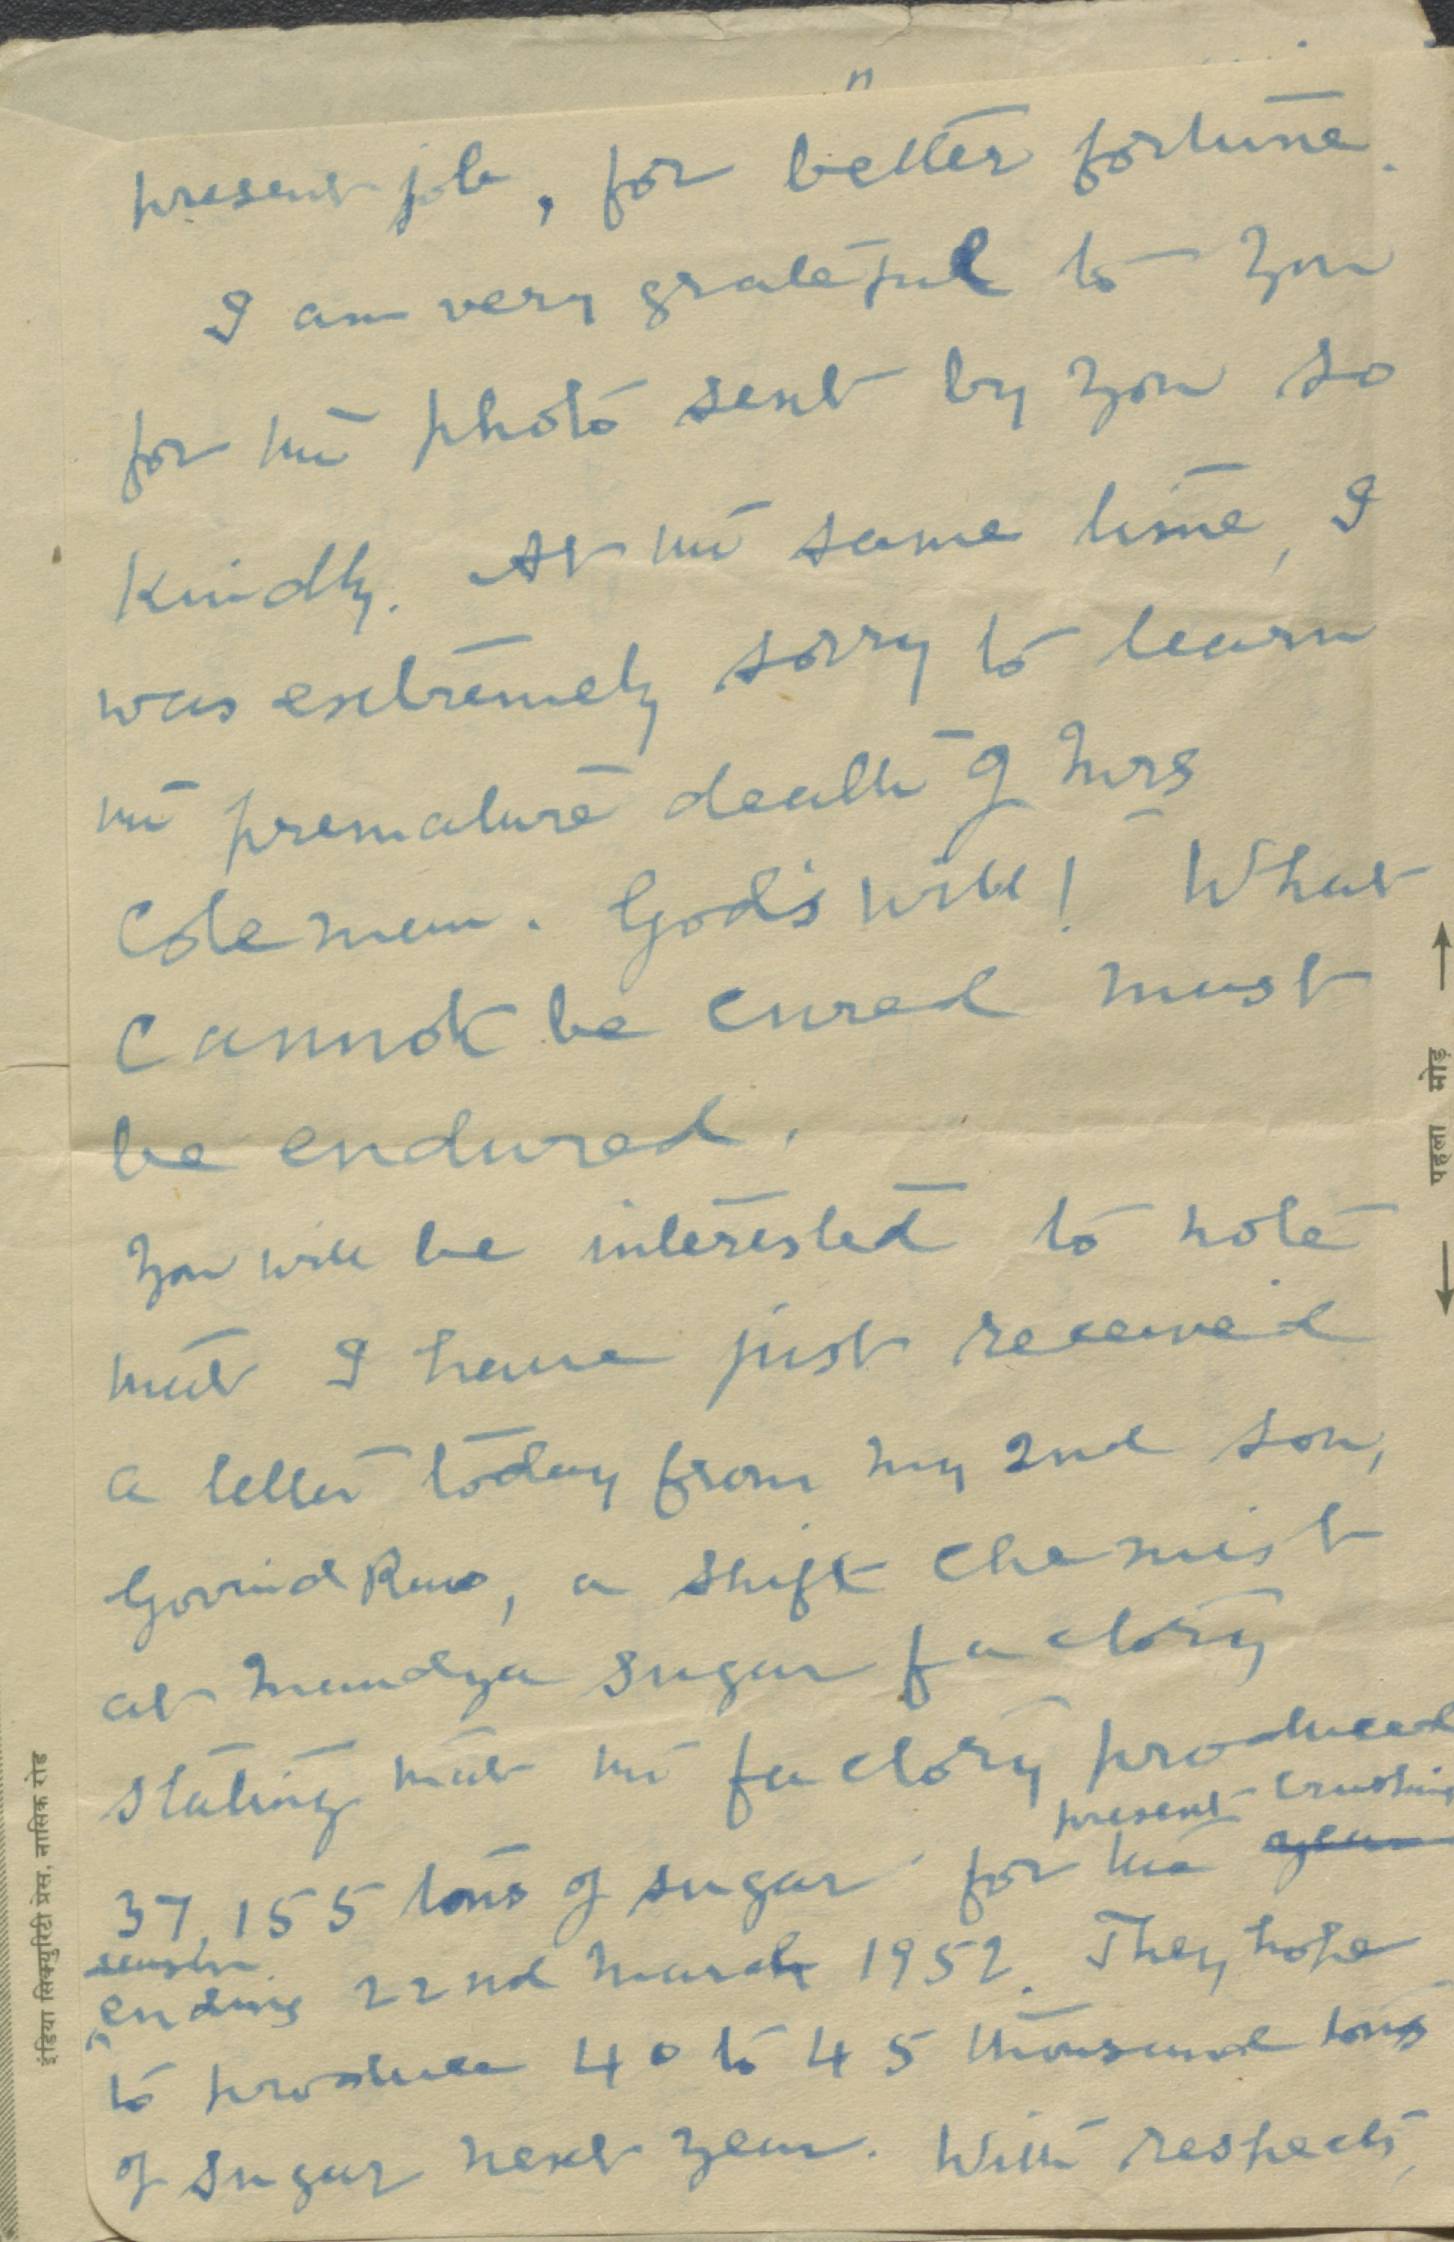 "
present job, for better fortune.
I am very grateful to you
for the photo sent by you so
kindly. At the same time, I
was extremely sorry to learn
the premature death of Mrs
Coleman. God's will! What
cannot be cured must
be endured.
You will be interested to note
that I have just received
a letter today from my 2nd son,
Govind Rao, a shift chemist
at Mandya sugar factory
stating that the factory produced
present crushing
37,155 tons of sugar for the year
season
ending 22nd March 1952. They hope
to produce 40 to 45 thousand tons
of sugar next year. With respects,
पहला मोड़
इंडिया सिक्युरिटी प्रेस, नासिक रोड